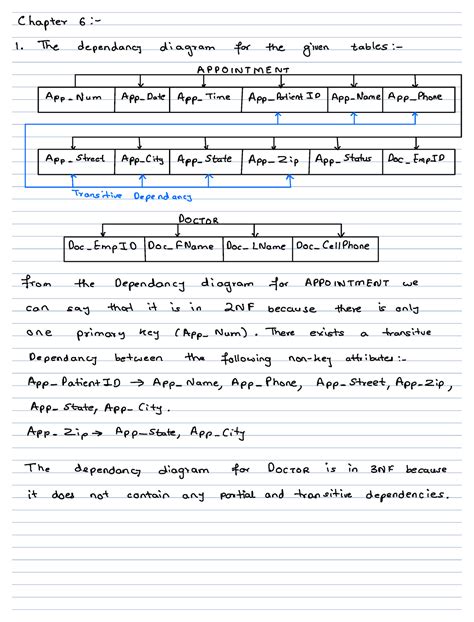 Chapter 6:-
1. The dependancy diagram for the given tables:-
APPOINTMENT
App_Num App_Date App_Time App_Patient ID App_Name App_Phone
App_Street App_City App_State App_Zip App_Status Doc_EmpID
Transitive Dependancy
DOCTOR
Doc_EmpID Doc_FName Doc_LName Doc_CellPhone
From the Dependancy diagram for APPOINTMENT we
can say that it is in 2NF because there is only
one primary key (App_Num). There exists a transitive
Dependancy between the following non-key attributes:-
App_Patient ID → App_Name, App_Phone, App_Street, App_Zip,
App_State, App_City.
App_Zip → App_State, App_City
The dependancy diagram for DOCTOR is in 3NF because
it does not contain any partial and transitive dependencies.